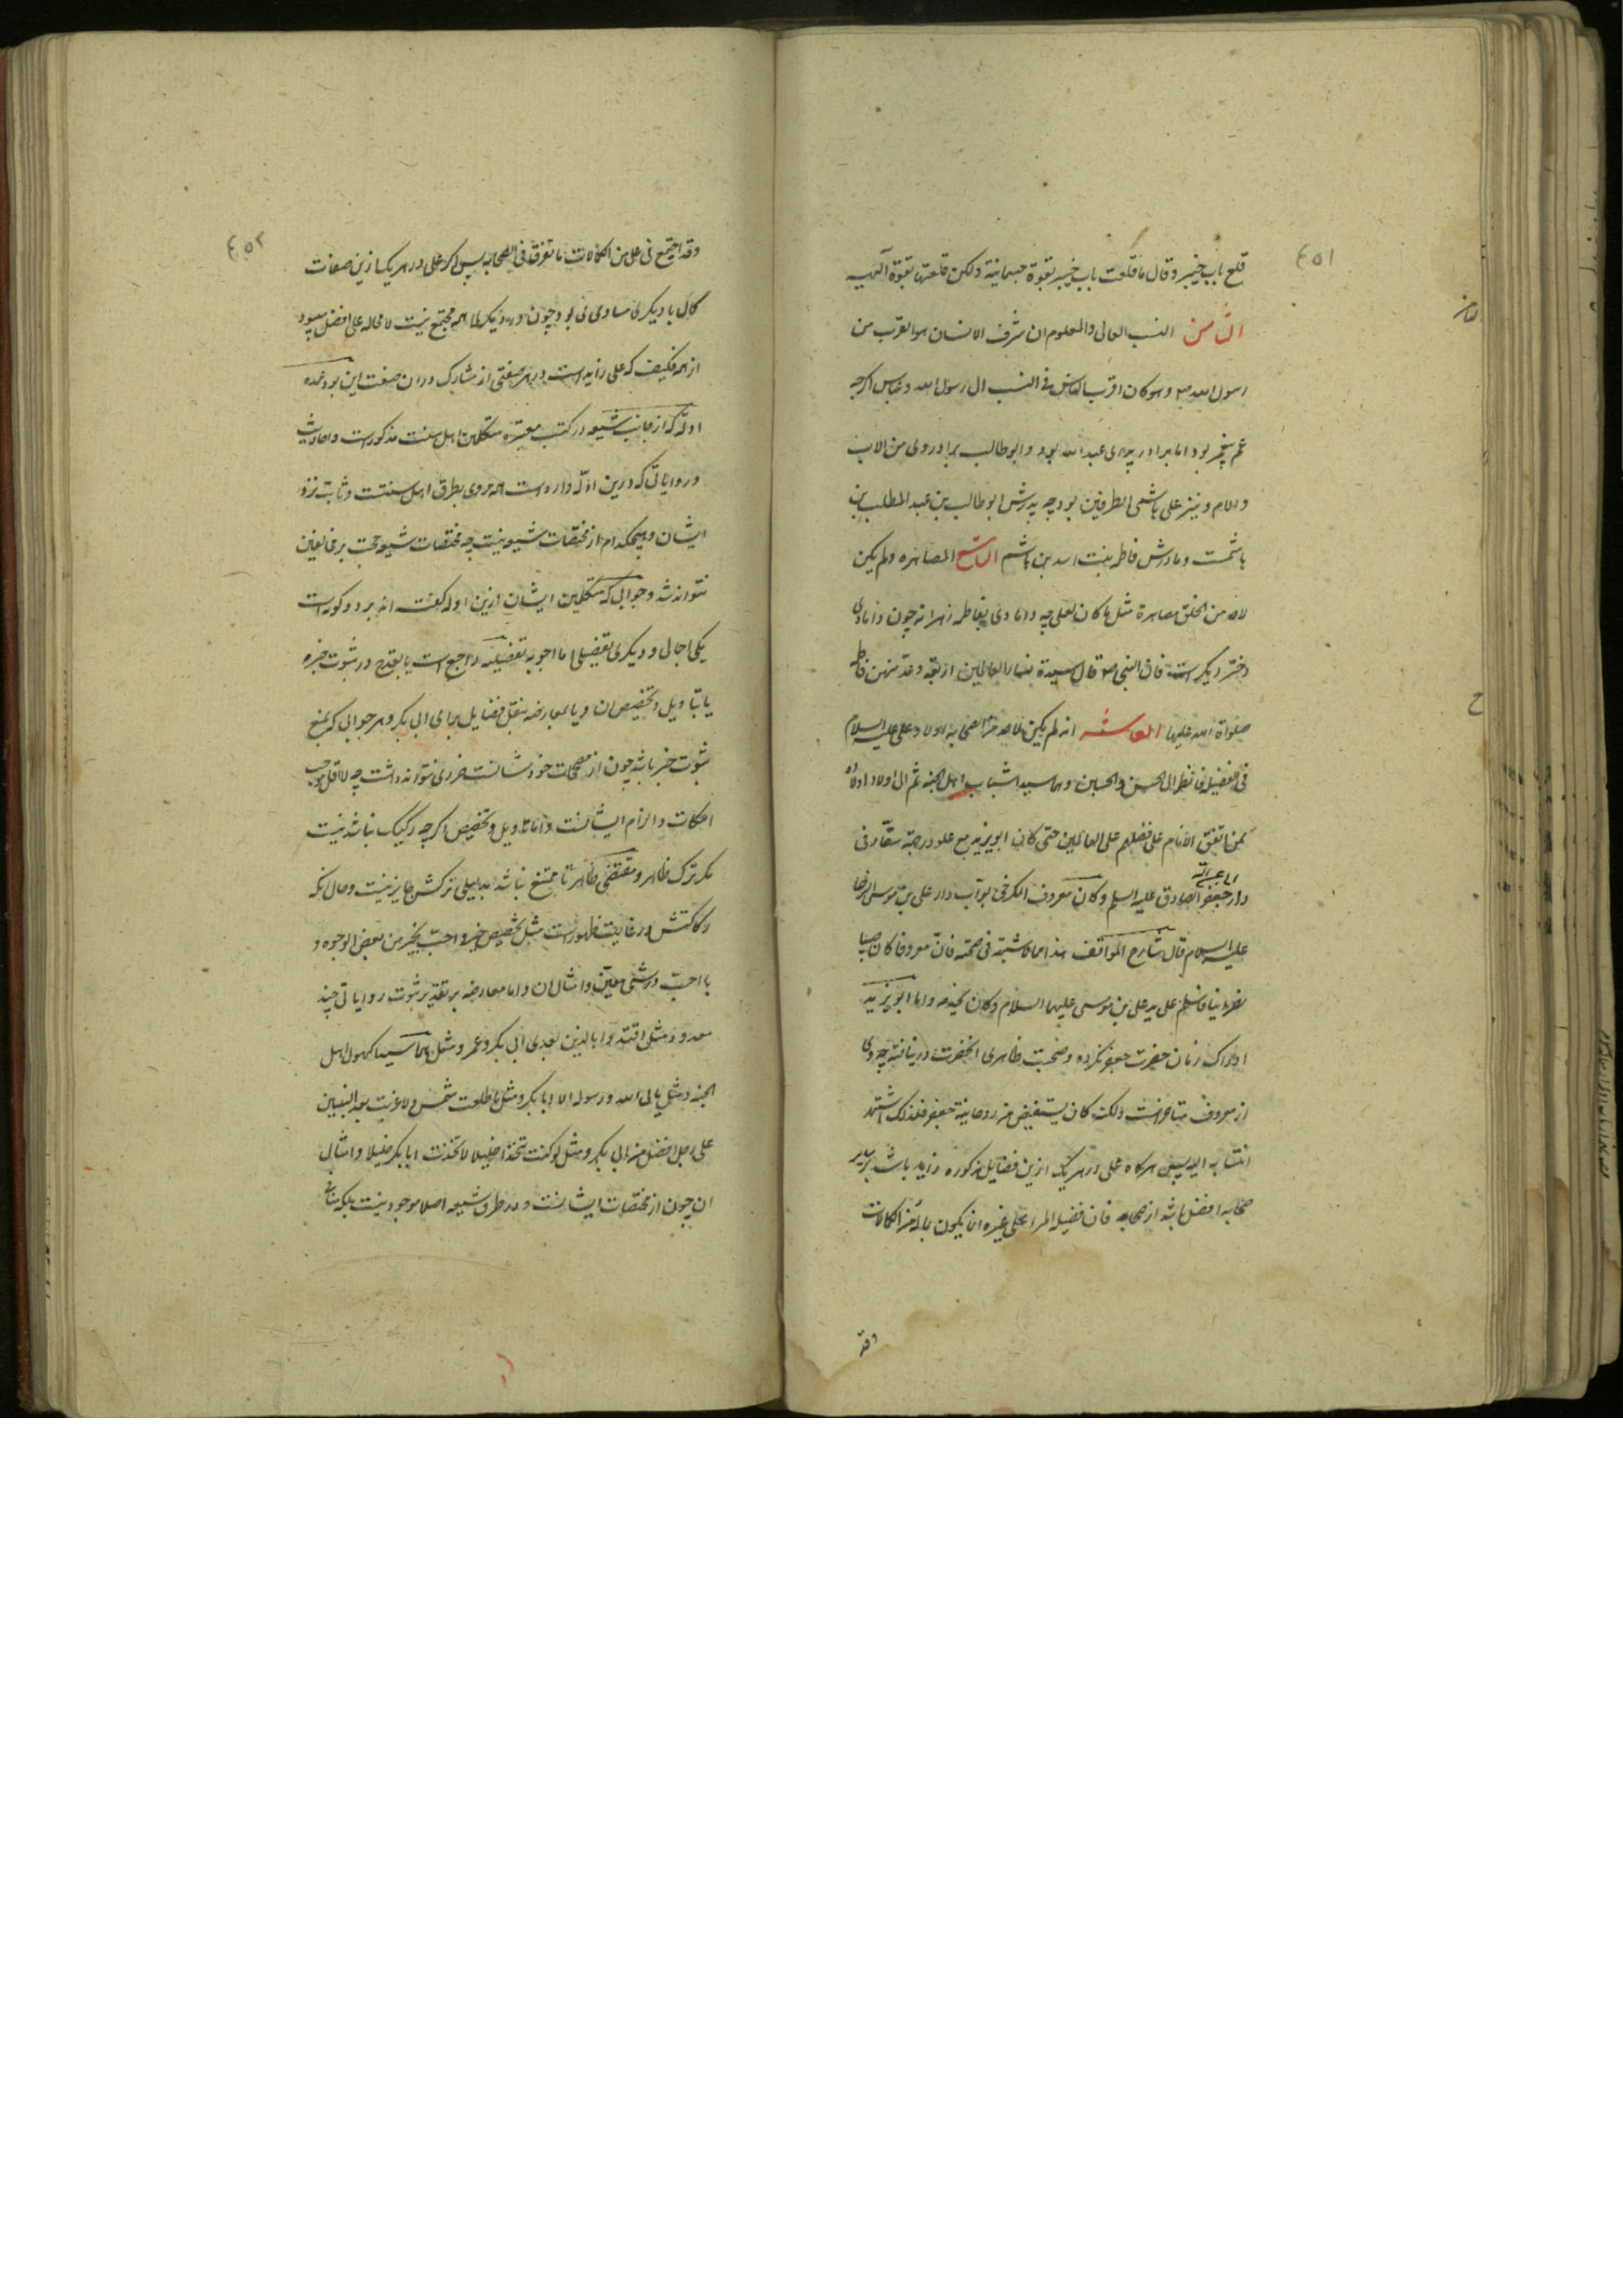 ٤٥١
قلع باب خیبر و قال ما قلعت باب خیبر بقوة جسمانیة ولکن قلعتها بقوة الهیه
الثامن النسب العالی والمعلوم ان شرف الانسان هو القرب من
رسول الله ص وهو کان اقرب الناس فی النسب الی رسول الله و عباس اگرچه
عم پیغمبر بود اما برادر پدری عبد الله بود و ابو طالب برادر وی من الاب
والام و نیز علی هاشمی الطرفین بود چه پدرش ابو طالب بن عبد المطلب بن
هاشمست و مادرش فاطمه بنت اسد بن هاشم التاسع المصاهره ولم یکن
لاحد من الخلق مصاهرة مثل ما کان لعلی چه دامادی بفاطمه زهرا نه چون دامادی
دختر دیگر است فان النبی ص قال سیدة نساء العالمین اربعة و عد منهن فاطمه
صلواة الله علیها العاشر انه لم یکن لاحد من الصحابه اولاد و علی علیه السلام
فی الفضیله فانظر الی الحسن والحسین وهما سیدا شباب اهل الجنه ثم الی اولاد اولاده
ممن اتفق الانام علی فضلهم علی العالمین حتی کان ابو یزید مع علو درجته سقاء فی
دار جعفر الصادق علیه السلم وکان معروف الکرخی بواب دار علی بن موسی الرضا
علیه السلام قال شارح المواقف هذا مما لا شبهة فی صحته فان معروفا کان صبیا
نصرانیا فاسلم علی ید علی بن موسی علیهما السلام وکان یخدمه واما ابو یزید
ادراک زمان حضرت جعفر نکرده و صحبت ظاهری انحضرت درنیافته چه وی
از معروف متاخرست ولکنه کان یستفیض من روحانیة جعفر فلذلک اشتهر
انتسابه الیه پس هرگاه علی در هر یک ازین فضایل مذکوره زاید باشد بر سایر
صحابه افضل باشد از صحابه فان فضیلة المرء علی غیره انما یکون بماله من الکمالات
وقد
٤٥٢
وقد اجتمع فی علی من الکمالات ما تفرقت فی الصحابه پس اگر علی در هر یک ازین صفات
کمال با دیگری مساوی می بود چون در دیگری همه مجتمع نیست لامحاله علی افضل میبود
از همه فکیف که علی زاید است در هر صفتی از مشارک در ان صفت این بود عمده
ادله که از جانب شیعه در کتب معتبره متکلمین اهل سنت مذکور است و احادیث
و روایاتی که درین ادله وارد است همه مروی بطرق اهل سنتست و ثابت نزد
ایشان و هیچکدام از مختصات شیعه نیست چه مختصات شیعه حجت بر مخالفین
نتواند شد و جوابی که متکلمین ایشان ازین ادله گفته اند بر دو گونه است
یکی اجمالی و دیگری تفصیلی اما اجوبه تفصیلیه راجع است یا بقدح در ثبوت خبر و
یا بتاویل و تخصیص ان و یا بمعارضه بنقل فضایل برای ابی بکر و هر جوابی که بمنع
ثبوت خبر باشد چون از مصححات خود شانست ضرری نتواند داشت چه لااقل موجب
اسکات و الزام ایشانست و اما تاویل و تخصیص اگرچه رکیک نباشد نیست
مگر ترک ظاهر و مقتضی ظاهر تا ممتنع نباشد بدلیلی ترکش جایز نیست و حال انکه
رکاکتش در غایت ظهور است مثل تخصیص خیر و احب بخیر من بعض الوجوه و
یا احب در شئی معین و امثال ان و اما معارضه بر تقدیر ثبوت روایاتی چند
معدود مثل اقتدوا بالذین بعدی ابی بکر و عمر و مثل هما سیدا کهول اهل
الجنه و مثل یابی الله ورسوله الا ابا بکر و مثل ما طلعت شمس ولا غربت بعد النبیین
علی رجل افضل من ابی بکر و مثل لو کنت متخذا خلیلا لاتخذت ابا بکر خلیلا و امثال
ان چون از مختصات ایشانست و در طرق شیعه اصلا موجود نیست بلکه